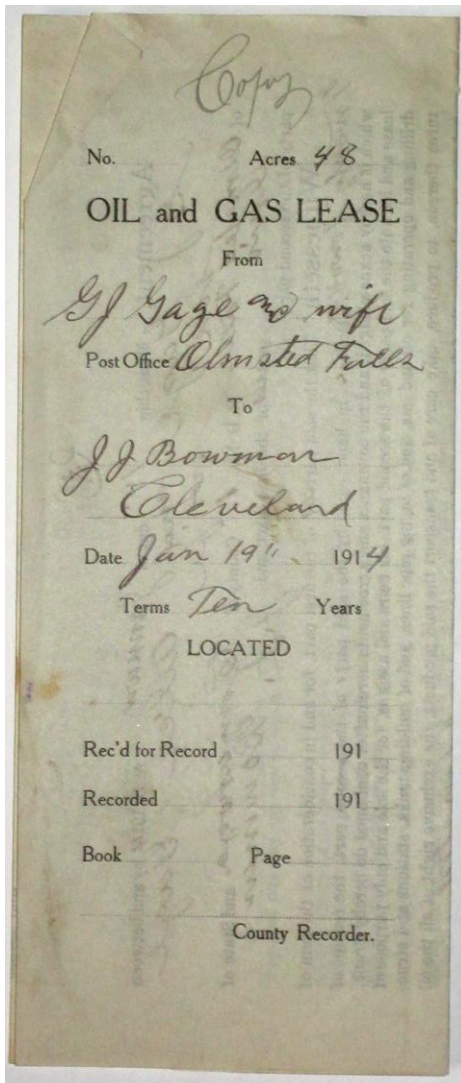 Copy
No. Acres 48
OIL and GAS LEASE
From
G J Gage and wife
Post Office Olmsted Falls
To
J J Bowman
Cleveland
Date Jan 19" 1914
Terms Ten Years
LOCATED
Rec'd for Record 191
Recorded 191
Book Page
County Recorder.